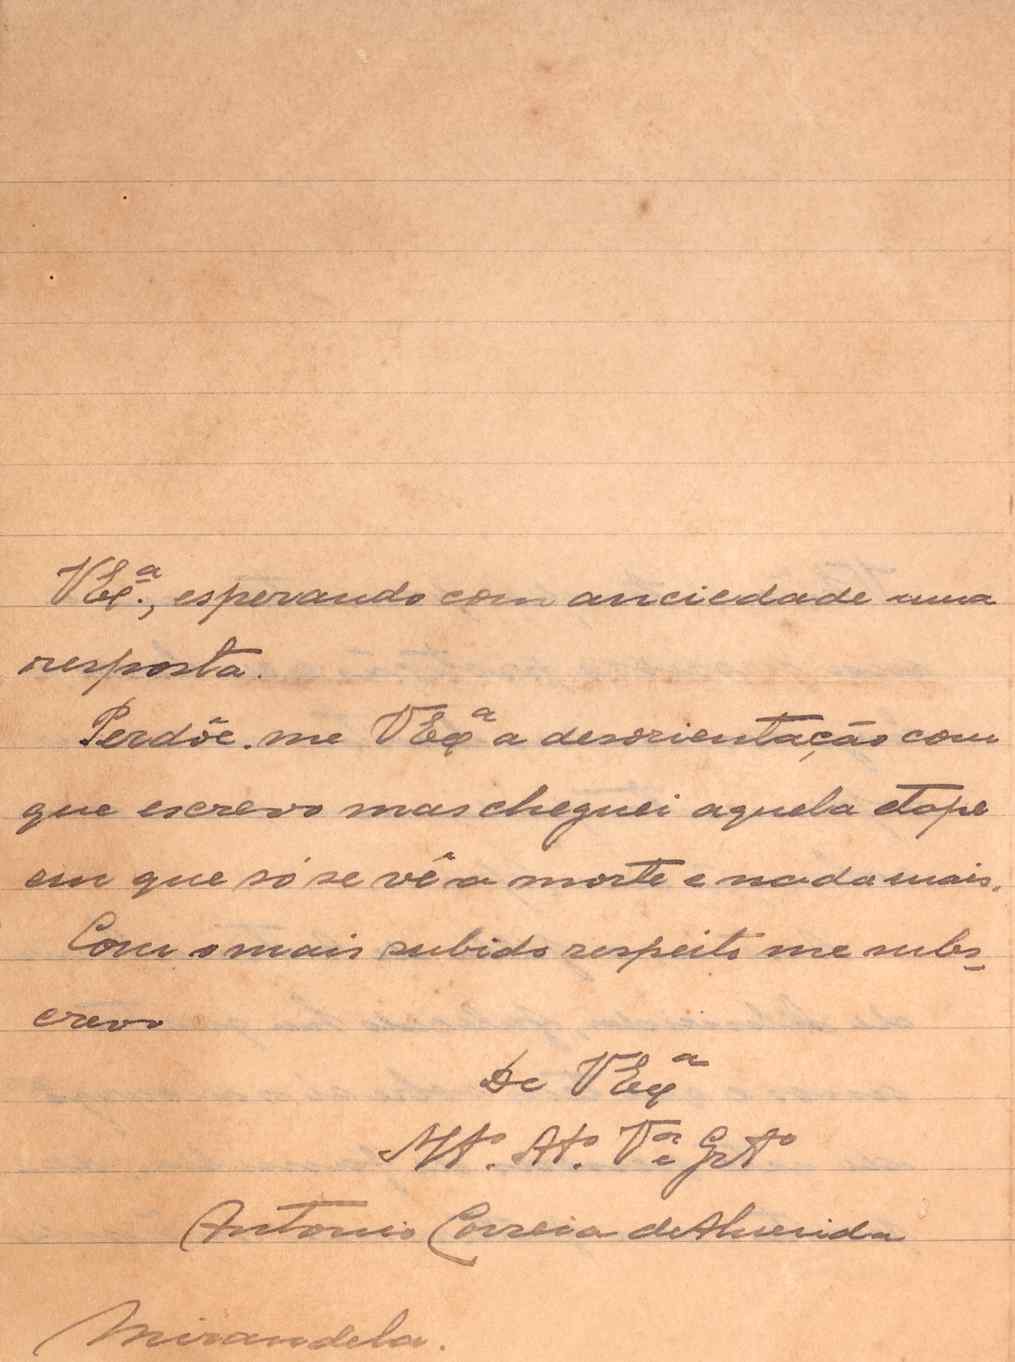 VEx.ª, esperando com anciedade uma
resposta.
Perdôe-me VExª a desorientação com
que escrevo mas cheguei aquela etape
em que só se vê a morte e nada mais.
Com o mais subido respeito me subs-
crevo
De VExª
Mtº. Atº. Vºr e Grtº
Antonio Correia de Almeida
Mirandela.